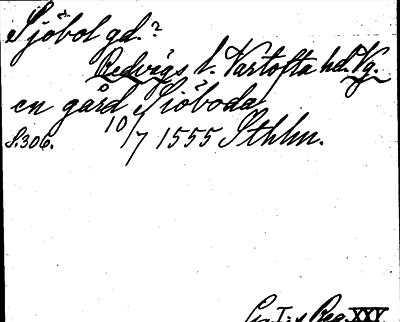 Sjöbol gd.?
Redvägs l. Vartofta hd. Vg.
en gård Sjöboda
S.306. 10/7 1555 Sthlm.
G. I:s Reg. XXV.